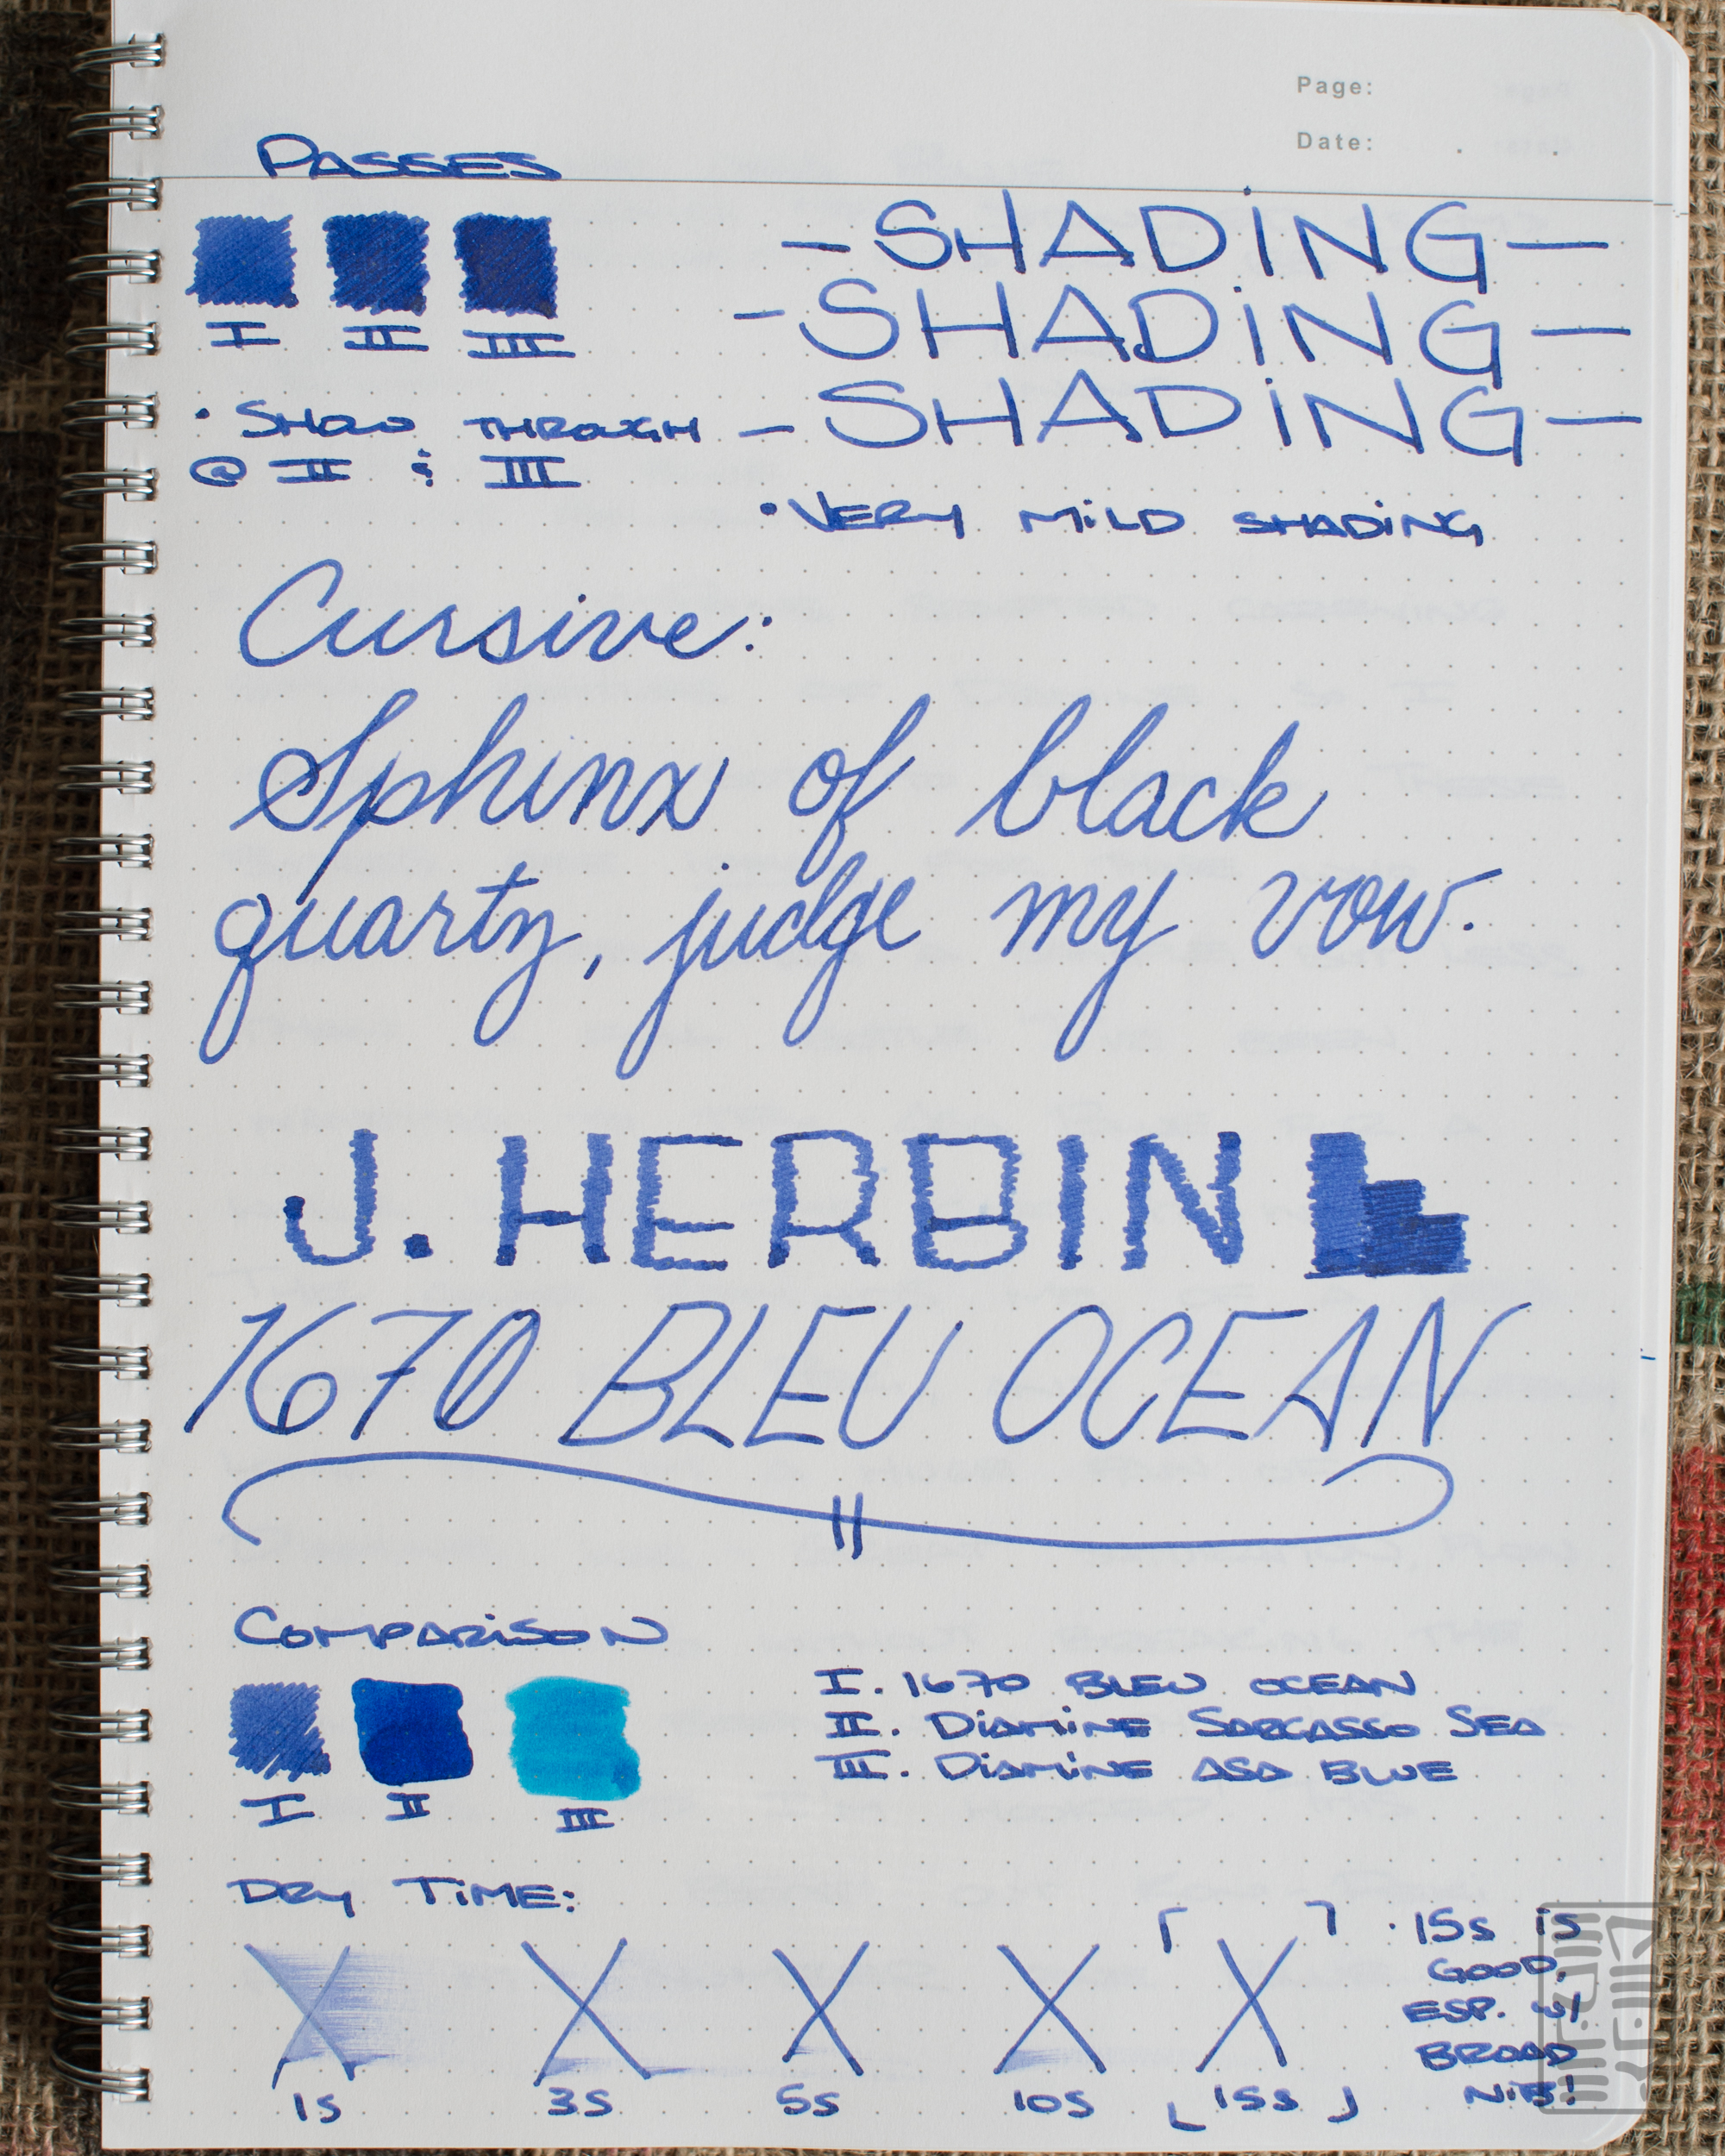 Page:
Date: . .
PASSES
I II III
• SHOW THROUGH
@ II & III
- SHADiNG -
- SHADiNG -
- SHADiNG -
• VERY MiLD SHADiNG
Cursive:
Sphinx of black
quartz, judge my vow.
J. HERBIN
1670 BLEU OCEAN
COMPARiSON
I II III
I. 1670 BLEU OCEAN
II. DiAMiNE SARGASSO SEA
III. DiAMiNE ASA BLUE
DRY TiME:
1s 3s 5s 10s 15s
· 15s iS
GOOD,
ESP. w/
BROAD
NiB!